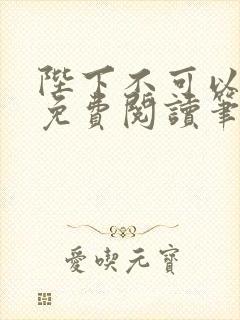 陛下不可以
免費閱讀筆
愛喫元寶